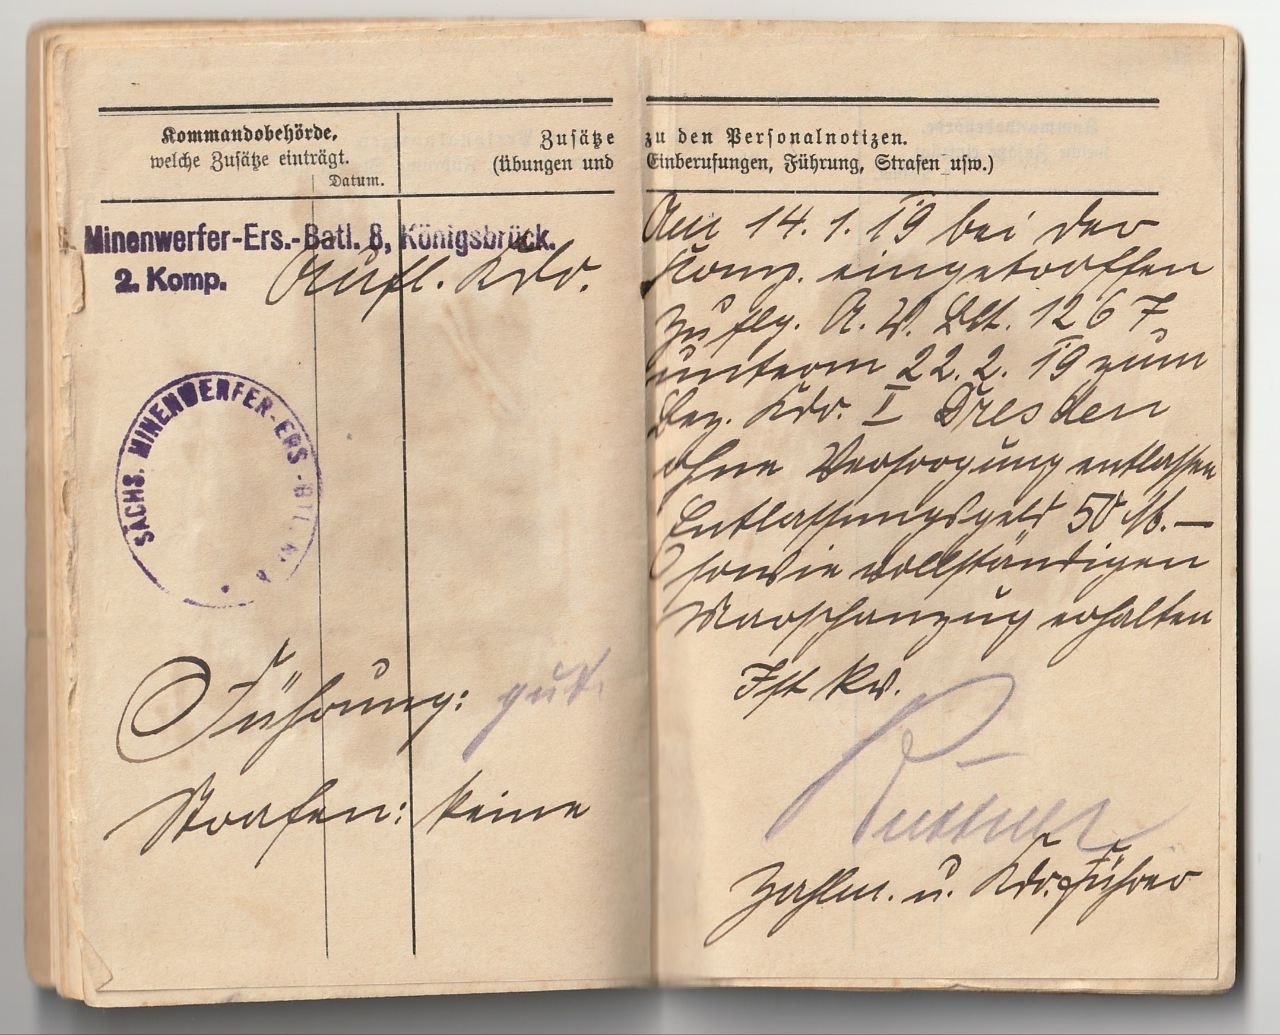 Kommandobehörde,
welche Zusätze einträgt.
Datum.
Minenwerfer-Ers.-Batl. 8, Königsbrück.
2. Komp.
Aufl. Kdo.
SÄCHS. MINENWERFER-ERS-BTL. N. 8
Führung: gut.
Strafen: keine
Zusätze zu den Personalnotizen.
(Übungen und Einberufungen, Führung, Strafen usw.)
Am 14. 1. 19 bei der
Komp. eingetroffen
Zuflg. A. V. Blt. 1267
unterm 22. 2. 19 zum
Bez. Kdo. I Dresden
ohne Versorgung entlassen
Entlassungsgeld 50 M. —
sowie vollständigen
Marschanzug erhalten
Ist kv.
Zahlm. u. Kdo. Führer